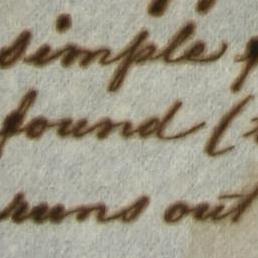 simple
found (
runs out